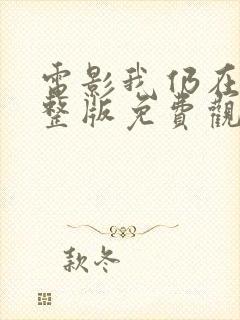 電影我仍在
整版免費觀
款冬